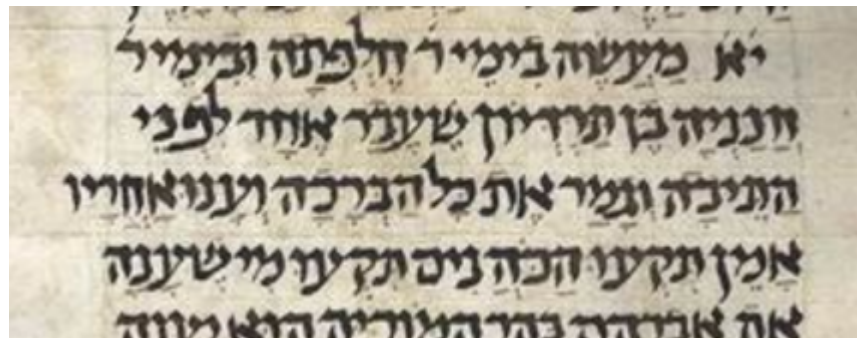 יא מעשה בימי ר חלפתה ובימי ר
חנניה בן תרדיון שעבר אחד לפני
התיבה וגמר את כל הברכה וענו אחריו
אמן תקעו הכהנים תקעו מי שענה
את אברהם בהר המוריה הוא